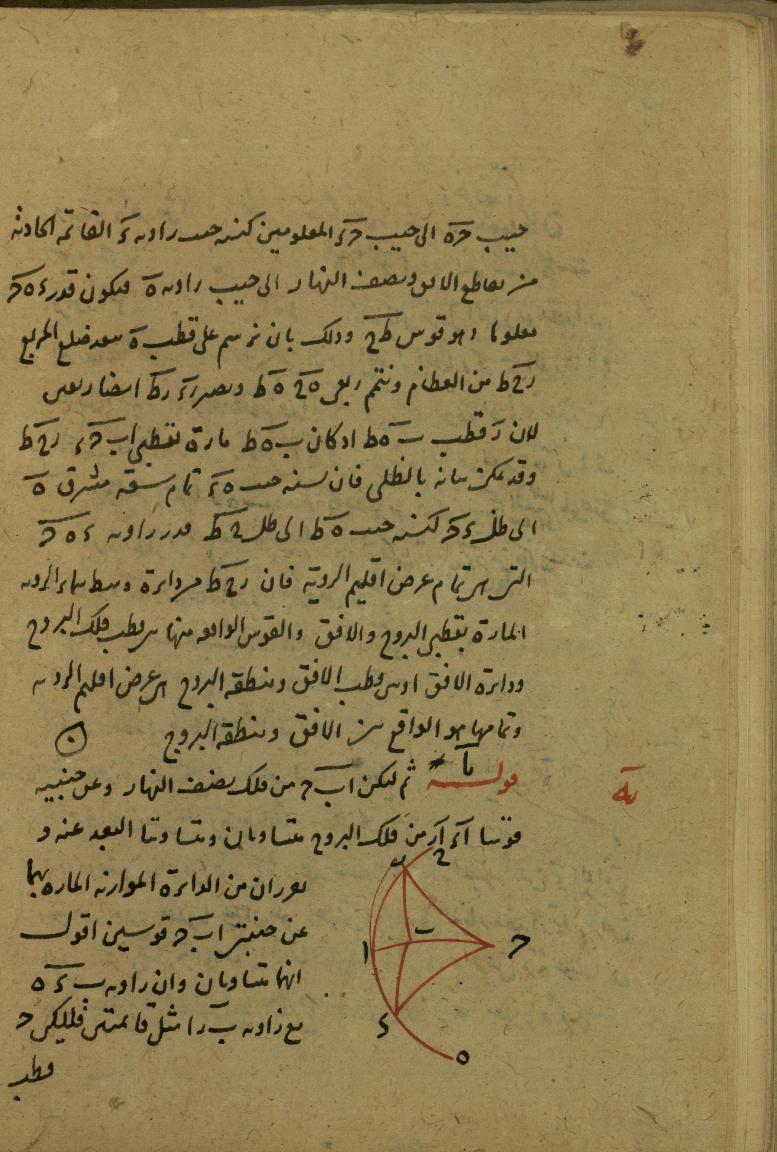 جيب حره الى جيب حرء المعلومين كنسبه جيب زاويه ء القائمه الحادثه
من تقاطع الافق ونصف النهار الى جيب زاويه ه فيكون قدر ء ه ح
معلوما وهو قوس طح وذلك بان نرسم على قطب ه ببعد ضلع المربع
رح ط من العظام ونتمم ربعى ه ح ه ط ويصير رء رط ايضا ربعين
لان ر قطب ب ه ط اذ كان ب ه ط مارة بقطبى اب ح ء رح ط
وقد يمكن بيانه بالظلى فان نسبه جيب ه ء تمام سعه مشرق ه
الى ظل ء ح كنسبه جيب ه ط الى ظل ح ط قدر زاويه ء ه ح
التى هى تمام عرض اقليم الرويه فان رح ط هى دايرة وسط سماء الرويه
المارة بقطبى البروج والافق والقوس الواقعه منها بين قطب فلك البروج
ودايرة الافق او بين قطب الافق ومنطقه البروج هى عرض اقليم الرويه
وتمامها هو الواقع بين الافق ومنطقه البروج
قوله يا ثم ليكن اب ح من فلك نصف النهار وعن جنبيه
يه
قوسا اء ار من فلك البروج متساويان ومتساويتا البعد عنه و
يفرزان من الدايرة الموازيه الماره بهما
عن جنبتى اب ح قوسين اقول
انهما متساويان وان زاويه ب ء ه
مع زاويه ب ر ا مثل قائمتين فليكن ح
قطب
ح
ر
ب
ا
ح
ء
ه